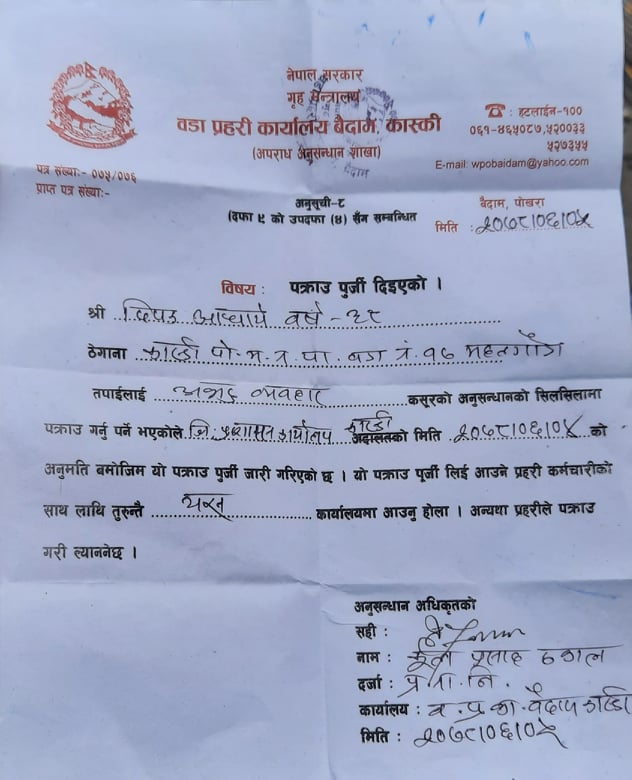 नेपाल सरकार
गृह मन्त्रालय
वडा प्रहरी कार्यालय बैदाम, कास्की
(अपराध अनुसन्धान शाखा)
☎ : हटलाईन-१००
०६१-४६५०८७,५२००३३
५२७३५५
E-mail: wpobaidam@yahoo.com
पत्र संख्याः- ०७५/०७६
प्राप्त पत्र संख्याः-
अनुसूची-८
(दफा ९ को उपदफा (४) सँग सम्बन्धित
बैदाम, पोखरा
मिति : २०७८।०६।०५
विषय : पक्राउ पुर्जी दिइएको ।
श्री दिपक आचार्य वर्ष -३८
ठेगाना कास्की पो.म.न.पा. वडा नं. १७
तपाईलाई अभद्र व्यवहार कसूरको अनुसन्धानको सिलसिलामा
पक्राउ गर्नु पर्ने भएकोले जि. प्रशासन कार्यालय कास्की अदालतको मिति २०७८।०६।०४ को
अनुमति बमोजिम यो पक्राउ पुर्जी जारी गरिएको छ । यो पक्राउ पूर्जी लिई आउने प्रहरी कर्मचारीको
साथ लाथि तुरुन्तै यस कार्यालयमा आउनु होला । अन्यथा प्रहरीले पक्राउ
गरी ल्याननेछ ।
अनुसन्धान अधिकृतको
सही :
नाम : प्रसाद ढकाल
दर्जा : प्र.ना.नि.
कार्यालय : व.प्र.का. वैदाम कास्की
मिति : २०७८।०६।०५